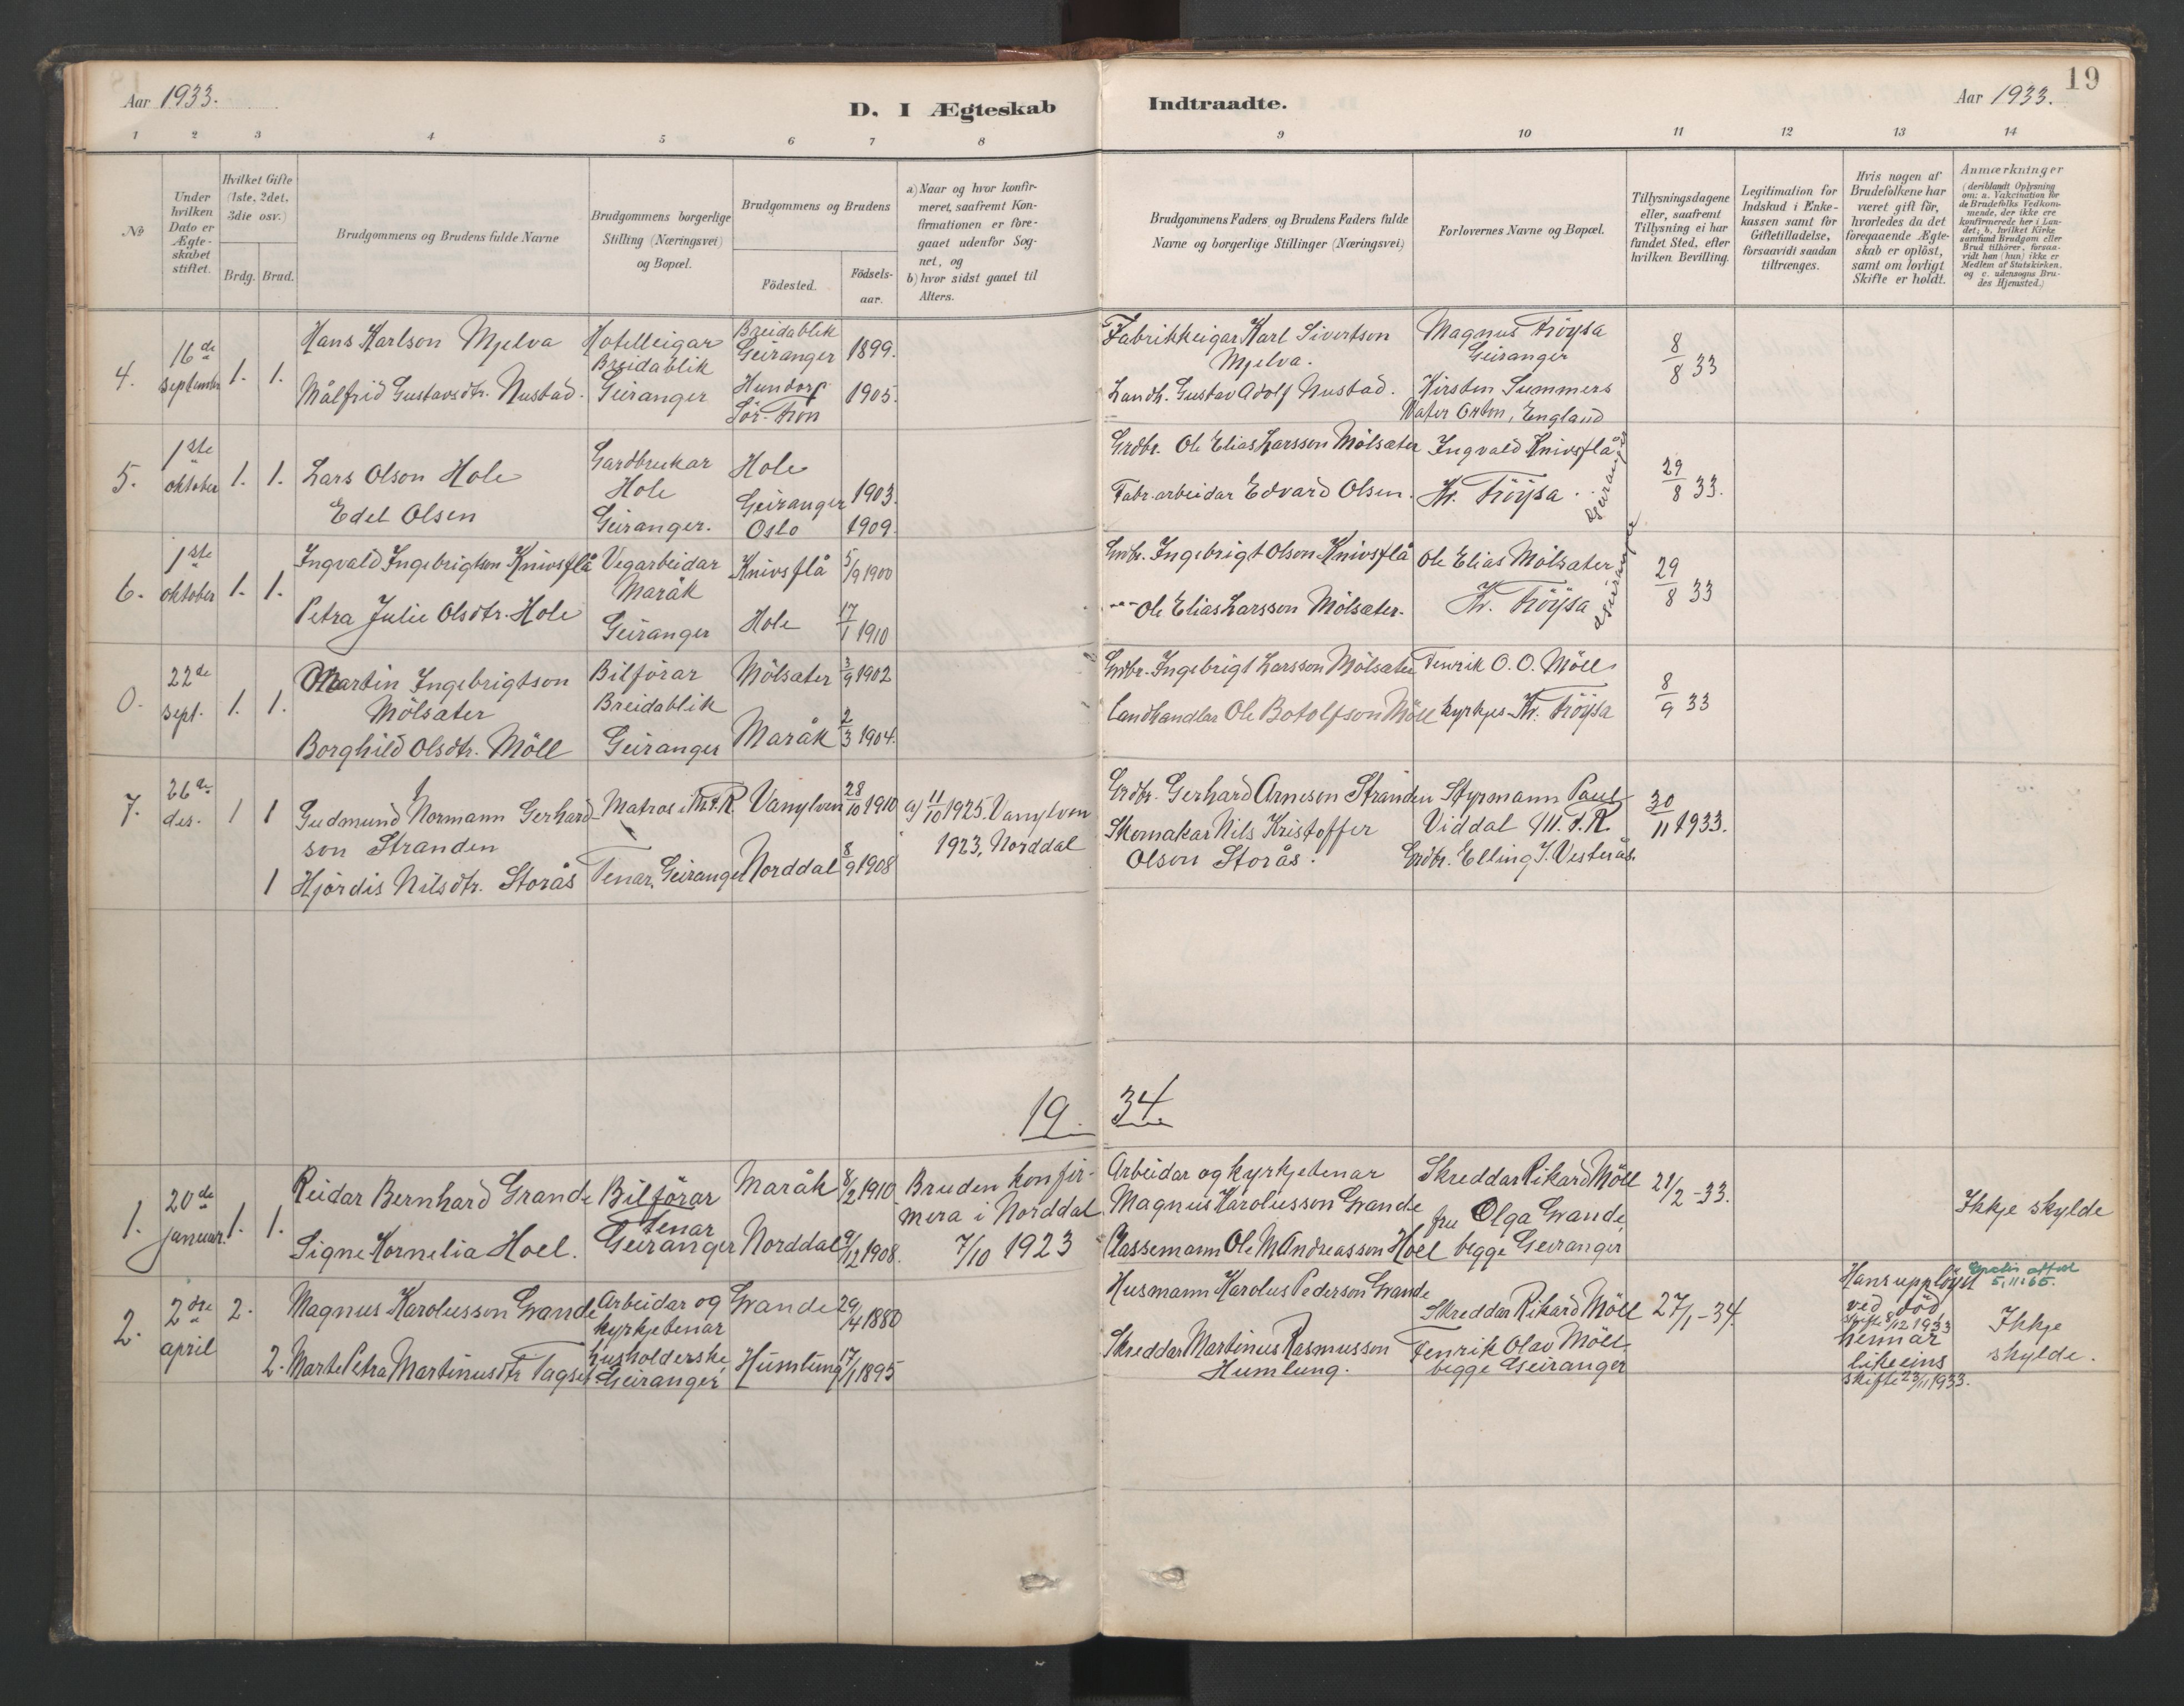 Aar 1933.
D. I Ægteskab Indtraadte.
Aar 1933.
19
1 2 3 4 5 6 7 8 9 10 11 12 13 14
No
Under hvilken Dato er Ægteskabet stiftet.
Hvilket Gifte (1ste, 2det, 3die osv.)
Brdg. Brud.
Brudgommens og Brudens fulde Navne
Brudgommens borgerlige Stilling (Næringsvei) og Bopæl.
Brudgommens og Brudens
Födested.
Födsels-aar.
a) Naar og hvor konfir-
meret, saafremt Kon-
firmationen er fore-
gaaet udenfor Sog-
net, og
b) hvor sidst gaaet til
Alters.
Brudgommens Faders og Brudens Faders fulde
Navne og borgerlige Stillinger (Næringsvei)
Forlovernes Navne og Bopæl.
Tillysningsdagene
eller, saafremt
Tillysning ei har
fundet Sted, efter
hvilken Bevilling.
Legitimation for
Indskud i Enke-
kassen samt for
Giftetilladelse,
forsaavidt saadan
tiltrænges.
Hvis nogen af
Brudefolkene har
været gift för,
hvorledes da det
foregaaende Ægte-
skab er oplöst,
samt om lovligt
Skifte er holdt.
Anmærkninger
(deriblandt Oplysning
om: a. Vakcination for
de Brudefolks Vedkom-
mende, der ikke ere
konfirmerede her i Lan-
det; b. hvilket Kirke
samfund Brudgom eller
Brud tilhörer, forsaa-
vidt han (hun) ikke er
Medlem af Statskirken,
og c. udensogns Bru-
des Hjemsted.)
4. 16de september 1. 1.
Hans Karlson Mjelva
Målfrid Gustavsdtr. Nustad.
Hotelleigar
Breidablik
Geiranger
Breidablik
Geiranger 1899.
Hundorp
Sör-Fron 1905.
Fabrikkeigar Karl Sivertson
Mjelva.
Landh. Gustav Adolf Nustad.
Magnus Fröysa
Geiranger
Kirsten Summers
Water Orton, England
8/8 33
5. 1ste oktober 1. 1.
Lars Olson Hole
Edel Olsen
Gardbrukar
Hole
Geiranger.
Hole
Geiranger 1903.
Oslo 1909.
Grdbr. Ole Elias Larsson Mölsæter
Fabr.arbeidar Edvard Olsen.
Ingvald Knivsflå
Kr. Fröysa
Geiranger
29/8 33.
6. 1ste oktober 1. 1.
Ingvald Ingebrigtson Knivsflå
Petra Julie Olsdtr. Hole
Vegarbeidar
Maråk
Geiranger
Knivsflå 5/9 1900
Hole 17/1 1910
Grdbr. Ingebrigt Olson Knivsflå
-"- Ole Elias Larsson Mölsæter.
Ole Elias Mölsæter
Kr. Fröysa
Geiranger
29/8 33
0. 22de sept. 1. 1.
Martin Ingebrigtson
Mölsæter
Borghild Olsdtr. Möll
Bilförar
Breidablik
Geiranger
Mölsæter 3/9 1902
Maråk 2/3 1904.
Grdbr. Ingebrigt Larsson Mölsæter
Landhandlar Ole Botolfson Möll
Fenrik O. O. Möll
kyrkjes. Kr. Fröysa
8/9 33
7. 26de des. 1 1
Gudmund Normann Gerhard-
son Stranden
1 Hjördis Nilsdtr. Storås
Matros i M.F.R.
Tenar, Geiranger
Vanylven 28/10 1910
Norddal 8/9 1908
a) 11/10 1925. Vanylven
1923, Norddal
Grdbr. Gerhard Arneson Stranden
Skomakar Nils Kristoffer
Olson Storås.
Styrmann Paul
Viddal M.F.R.
Grdbr. Elling J. Vesterås
30/11 1933.
19 34
1. 20de januar. 1. 1.
Reidar Bernhard Grande
Signe Kornelia Hoel.
Bilförar
Tenar
Geiranger
Maråk 8/2 1910
Norddal 9/12 1908.
Bruden konfir-
mera i Norddal
7/10 1923
Arbeidar og kyrkjetenar
Magnus Karolusson Grande
Plassemann Ole M Andreasson Hoel
Skreddar Rikard Möll
fru Olga Grande,
begge Geiranger
21/2-33.
Ikkje skylde
2. 2dre april 2.
Magnus Karolusson Grande
2. Marte Petra Martinusdtr Tagset
Arbeidar og
kyrkjetenar
husholderske
Geiranger
Grande 29/4 1880
Humlung 17/1 1895
Husmann Karolus Pederson Grande
Skreddar Martinus Rasmusson
Humlung.
Skreddar Rikard Möll
Fenrik Olav Möll,
begge Geiranger
27/1-34.
Hans upplöyst
ved död,
skifte 8/12 1933
hennar
likeeins
skifte 23/11 1933.
5.11.65.
Ikkje
skylde.